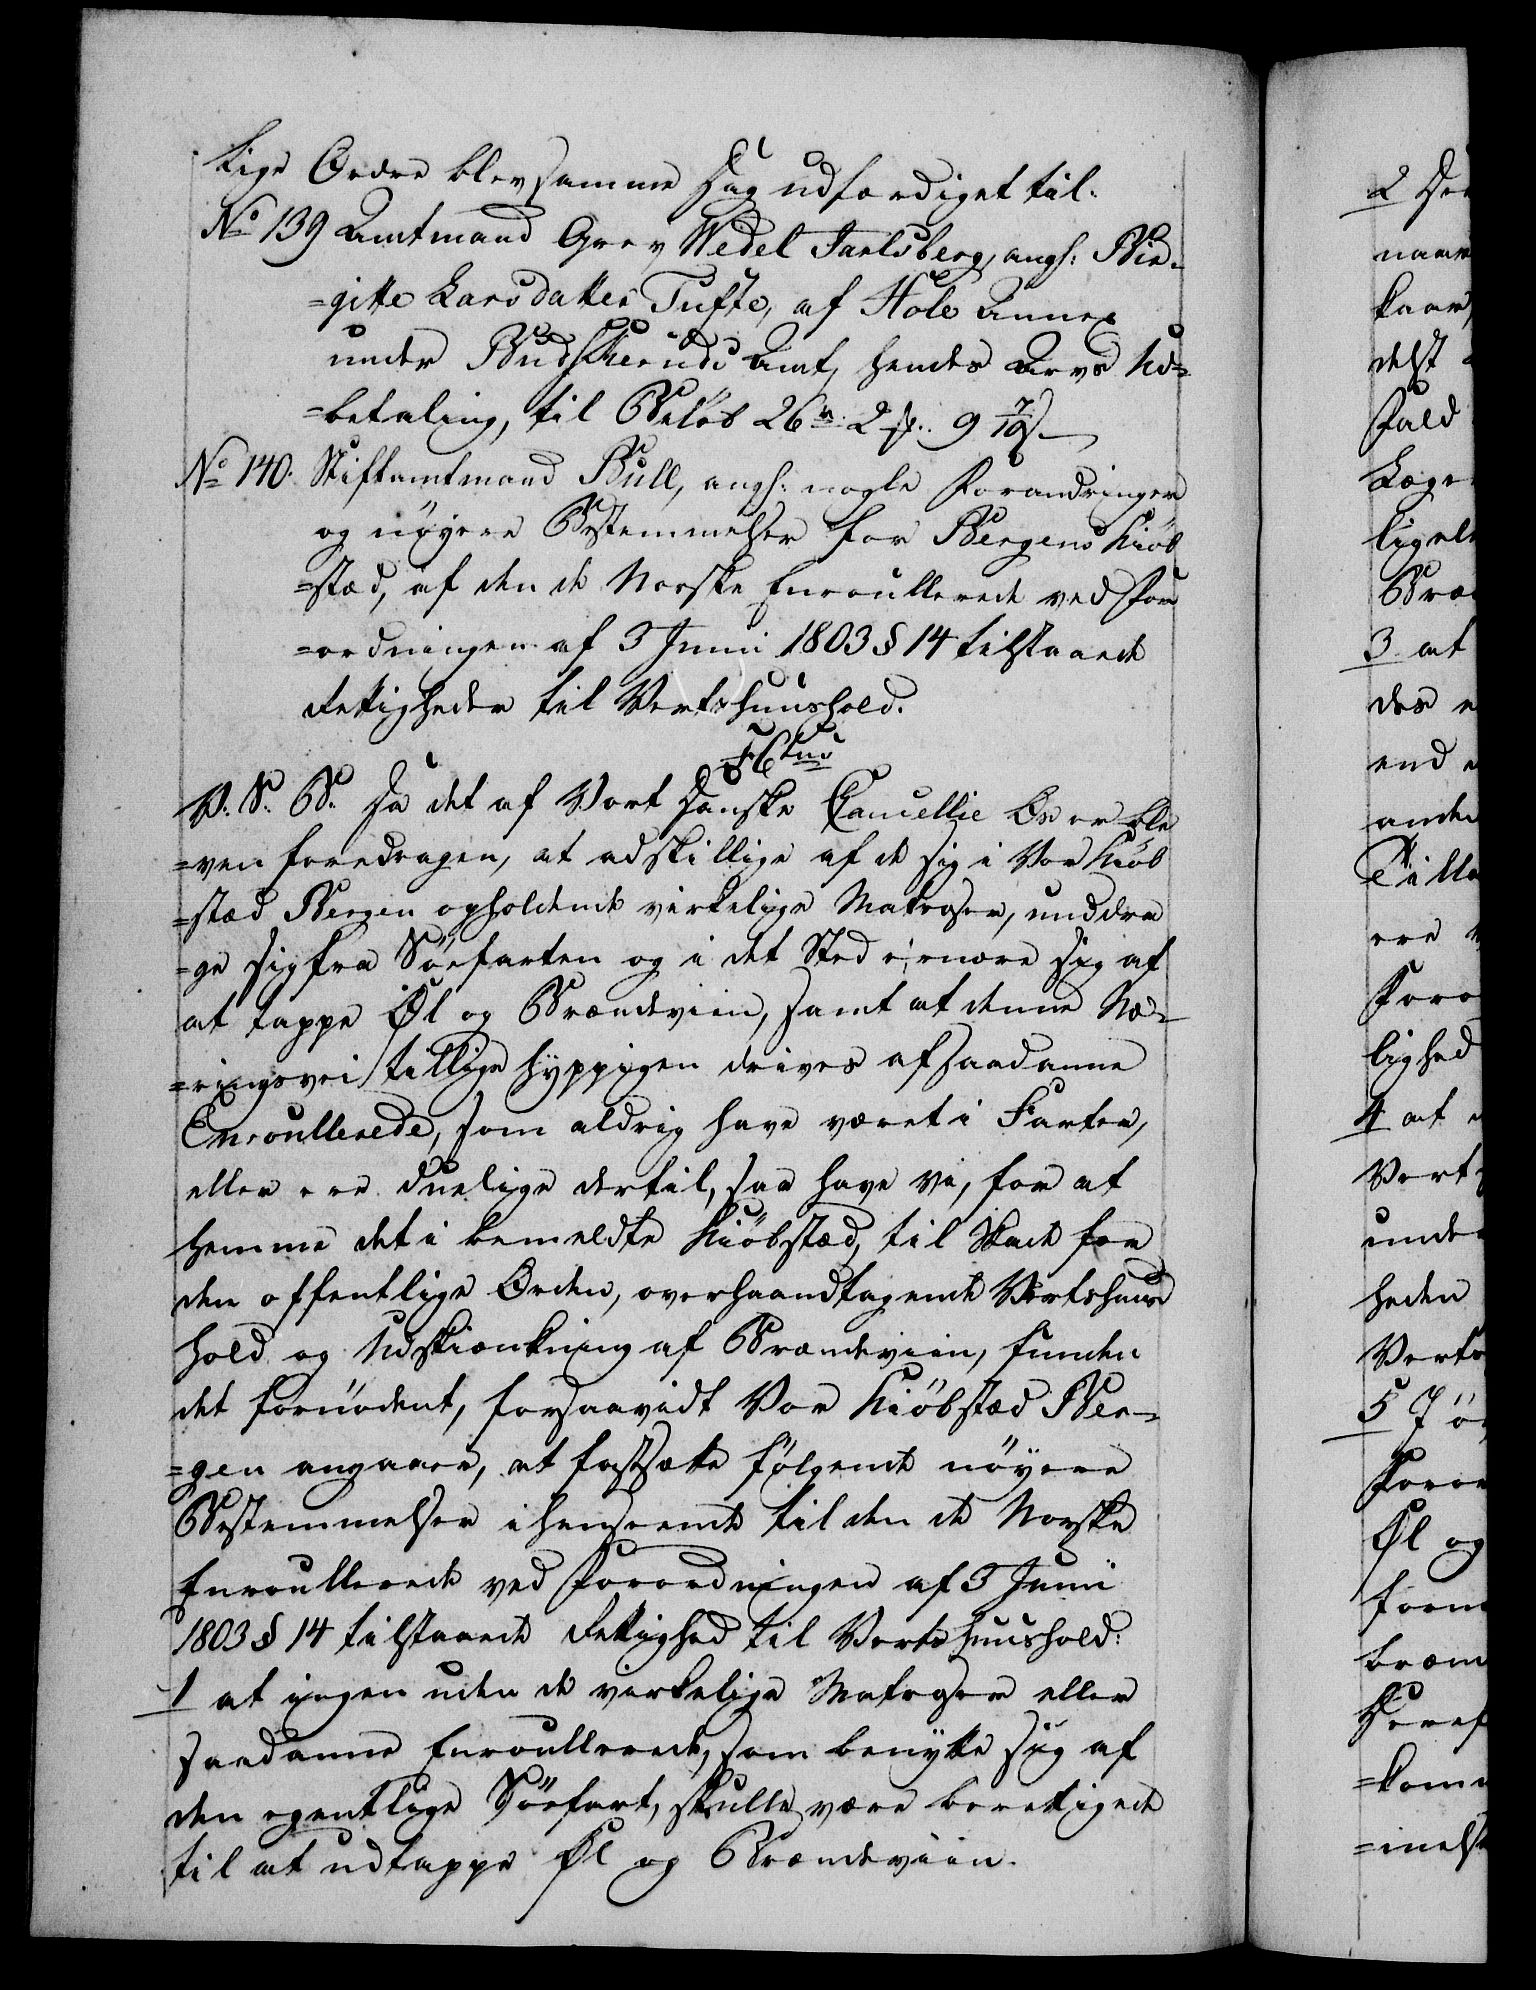 Lige Ordre blev samme Dag udfærdiget til.
No 139 Amtmand Grev Wedel Jarlsberg, angs: Bir-
=gitte Larsdatter Tufte, af Hole Annex
under Budskeruds Amt, hendes Arvs Ud-
=betaling, til Beløb 26 2 9 7/10
No 140. Stiftamtmand Bull, angs: nogle Forandringer
og nöyere Bestemmelser for Bergens Kiöb
=stæd, af den de Norske Enroullerede ved For
=ordningen af 3 Juni 1803 § 14 tilstaaede
Rettigheder til Vertshuushold.
V. S. G. Da det af Vort Danske Cancellie Os er ble
=ven foredragen, at adskillige af de sig i Vor Kiöb
=stæd Bergen opholdende virkelige Matroser, unddra
=ge sig fra Söefarten og i det Sted ernære sig af
at tappe Øl og Brændeviin, samt at denne Næ-
=ringsvei tillige hyppigen drives af saadanne
Enroullerede, som aldrig have været i Farten,
eller ere duelige dertil, saa have Vi, for at
hemme det i bemeldte Kiöbstæd, til Skade for
den offentlige Orden, overhaandtagende Vertshuus
hold og Udskiænkning af Brændeviin, funden
det fornödent, forsaavidt Vor Kiöbstæd Ber-
=gen angaaer, at fastsætte fölgende nöyere
Bestemmelser i henseende til den de Norske
Enroullerede ved Forordningen af 3 Juni
1803 § 14 tilstaaede Rettighed til Vertshuushold:
1 at ingen uden de virkelige Matroser eller
saadanne Enroullerede, som benytte sig af
den egentlige Söefart, skulle være berettigede
til at udtappe Øl og Brændeviin.
2
naar
kaar
delst
Fald
Læge
ligele
3 at
des
end
ande
ere
Foro
lighed
4 at
Vert
unde
heden
Verts
5
Øl og
=kom